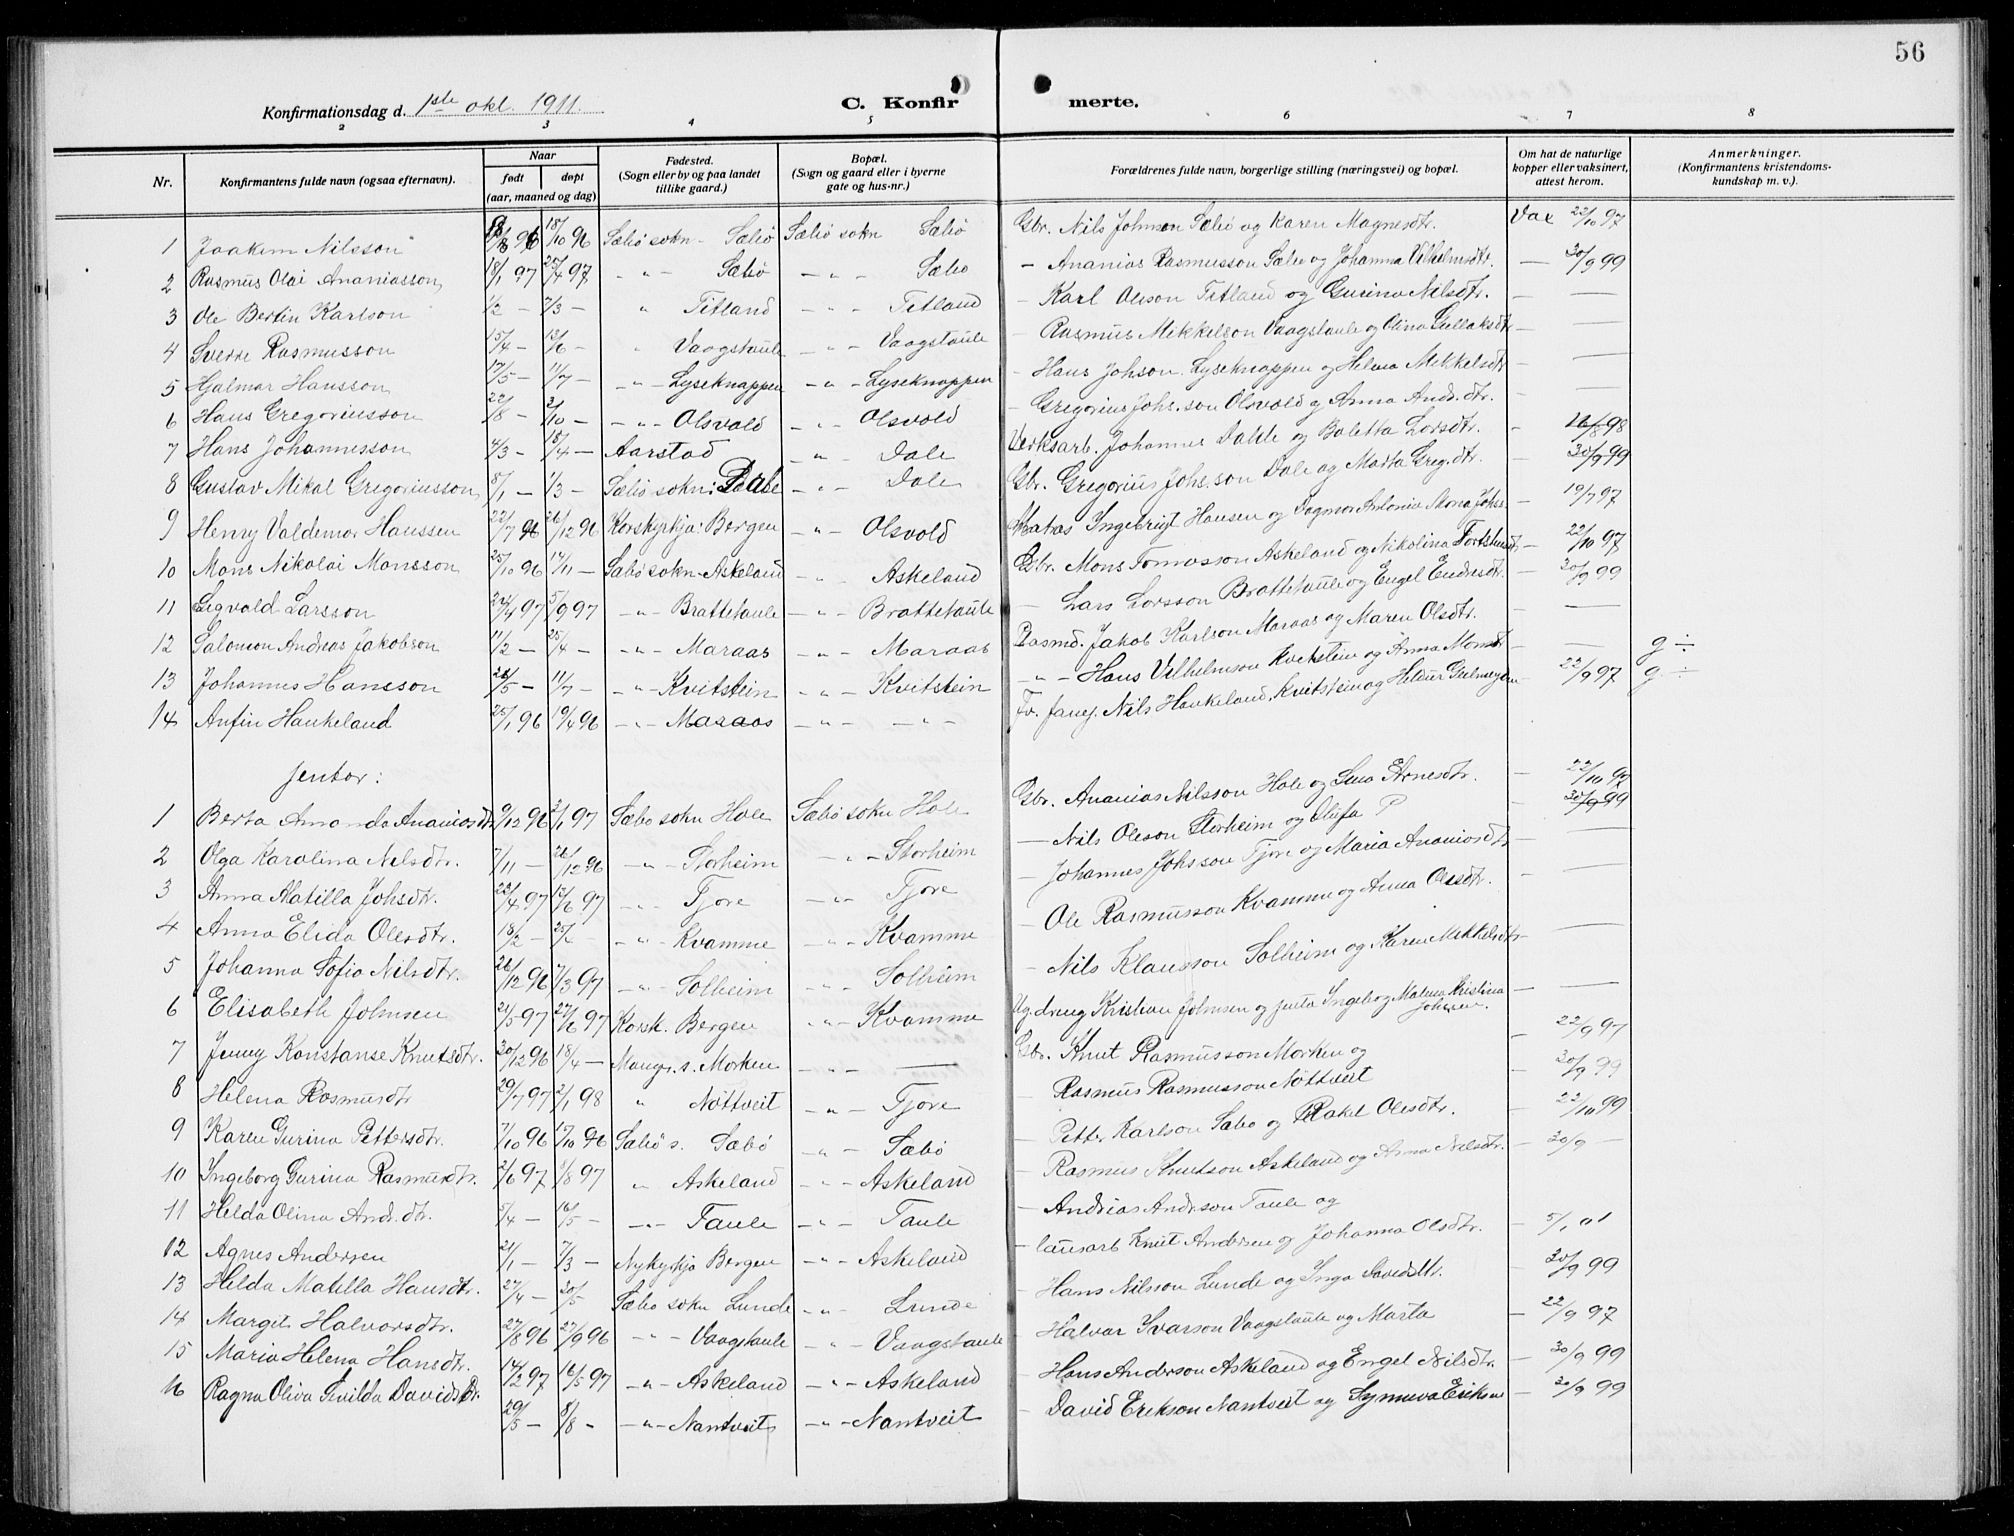 56
Konfirmationsdag d. 1ste okt. 1911.
C. Konfirmerte.
2 3 4 5 6 7 8
Nr. Konfirmantens fulde navn (ogsaa efternavn). Naar født døpt (aar, maaned og dag) Fødested. (Sogn eller by og paa landet tillike gaard.) Bopæl. (Sogn og gaard eller i byerne gate og hus-nr.) Forældrenes fulde navn, borgerlige stilling (næringsvei) og bopæl. Om hat de naturlige kopper eller vaksinert, attest herom. Anmerkninger. (Konfirmantens kristendomskundskap m. v.).
1 Joakim Nilsson 18/10 96 Sæbø sokn - Sæbø Sæbø sokn Sæbø Gbr. Nils Johnson Sæbø og Karen Magnesdtr. Vac 22/10 97
2 Rasmus Olai Ananiasson 18/1 97 25/4 97 -"- Sæbø -"- Sæbø - Ananias Rasmusson Sæbø og Johanna Vilhelmsdtr. - 30/9 99
3 Ole Bertin Karlson 1/2 - 7/3 - " Titland -"- Titland - Karl Oleson Titland og Gurina Nilsdtr. - —
4 Sverre Rasmusson 15/4 - 13/6 - " Vaagstaule -"- Vaagstaule - Rasmus Mikkelson Vaagstaule og Olina Gullaksdtr - —
5 Hjalmar Hansson 17/5 - 11/7 - -"- Lyseknappen -"- Lyseknappen - Hans Johson Lyseknappen og Helena Mikkelsdtr - —
6 Hans Gregoriusson 22/8 - 3/10 - -"- Olsvold -"- Olsvold - Gregorius Johs.son Olsvold og Anna And.dtr. - —
7 Hans Johannesson 4/3 - 18/4 - Aarstad -"- Dale Verksarb. Johannes Dale og Boletta Larsdtr. - 16/8 98
8 Gustav Mikal Gregoriusson 8/1 - 1/3 - Sæbø sokn: Dale -"- Dale Gbr. Gregorius Johs.son Dale og Marta Greg.dtr. - 30/9 99
9 Henry Valdemar Hanssen 22/7 96 26/12 96 Korskyrkja: Bergen -"- Olsvold Matros Ingebrigt Hansen og Dagmar Antonie Mona Johs. - 19/7 97
10 Mons Nikolai Monsson 25/10 96 14/11 - Sæbø sokn - Askeland -"- Askeland Gbr. Mons Tomasson Askeland og Nikolina - 22/10 97
11 Sigvald Larsson 24/4 97 5/9 97 -"- Brattetaule -"- Brattetaule - Lars Larsson Brattetaule og Engel Endresdtr. - 30/9 99
12 Salomon Andreas Jakobson 11/2 - 25/4 - -"- Maraas -"- Maraas Plasmd. Jakob Karlson Maraas og Maren Olsdtr. - —
13 Johannes Hansson 26/5 - 11/7 - -"- Kvitstein -"- Kvitstein -"- Hans Vilhelmson Kvitstein og Anna Monsdtr - — g ÷
14 Anfin Haukeland 25/1 96 19/4 96 -"- Maraas -"- -"- Nils Haukeland, Kvitstein og Heldur - 22/9 97 g ÷
Jentor:
1 Berta Amanda Ananiasdtr 9/12 96 3/1 97 Sæbø sokn Hole Sæbø sokn Hole Gbr. Ananias Nilsson Hole og Arnesdtr. - 22/10 97
2 Olga Karolina Nilsdtr. 7/11 - 26/12 96 -"- Storheim -"- Storheim - Nils Oleson Storheim og Olufa P - 30/9 99
3 Anna Matilla Johsdtr. 22/4 97 13/6 97 -"- Tjore -"- Tjore - Johannes Johsson Tjore og Maria Ananiasdtr - —
4 Anna Elida Olesdtr. 18/2 - 25/4 - -"- Kvamme -"- Kvamme - Ole Rasmusson Kvamme og Anna Olesdtr. - —
5 Johanna Sofia Nilsdtr. 26/12 96 7/3 97 -"- Solheim -"- Solheim - Nils Klausson Solheim og Karen Mikkelsdtr - —
6 Elisabeth Johnsen 21/5 97 27/6 97 Korsk. Bergen -"- Kvamme Kristian Johnsen og jenta Ingeborg Malena Kristina Johnsen. - —
7 Jenny Konstanse Knutsdtr. 20/12 96 18/4 - Mangr. s. Morken -"- — Gbr. Knut Rasmusson Morken og - 22/9 97
8 Helena Rasmusdtr 29/7 97 2/1 98 " Nøttveit -"- Tjore - Rasmus Rasmusson Nøttveit - 30/9 99
9 Karen Gurina Pettersdtr. 7/10 96 17/10 96 Sæbø s. Sæbø -"- Sæbø - Petter Karlson Sæbø og Rakel Olesdtr. - 22/10 99
10 Ingeborg Gurina Rasmusdtr. 2/6 97 1/8 97 " Askeland -"- Askeland - Rasmus Knutson Askeland og Anna Nilsdtr. - 30/9 —
11 Helda Olina And.dtr. 5/4 - 16/5 - -"- Taule -"- Taule - Andreas Anderson Taule og
12 Agnes Andersen 21/1 - 7/3 - Nykyrkja Bergen -"- Askeland - lausarb Knut Andersen og Johanna Olsdtr. - 5/1 01
13 Helda Matilla Hansdtr. 27/4 - 20/5 - Sæbø sokn Lunde -"- Lunde - Hans Nilsson Lunde og Inga Davidsdtr. - 30/9 99
14 Margit Halvorsdtr. 27/8 96 27/9 96 -"- Vaagstaule -"- Vaagstaule - Halvar Ivarson Vaagstaule og Marta - 22/9 97
15 Maria Helena Hansdtr. 14/2 97 16/5 97 -"- Askeland -"- Askeland - Hans Anderson Askeland og Engel Nilsdtr. - 30/9 99
16 Ragna Oliva Davidsdtr. 29/5 - 8/8 - -"- Nantveit -"- Nantveit - David Erikson Nantveit og Synneva - 30/9 99